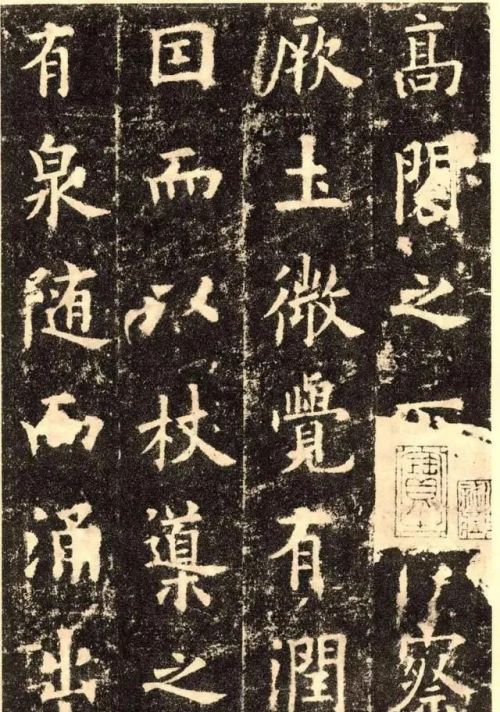 高閣之察
厥土微覺有潤
因而以杖導之
有泉随而涌出